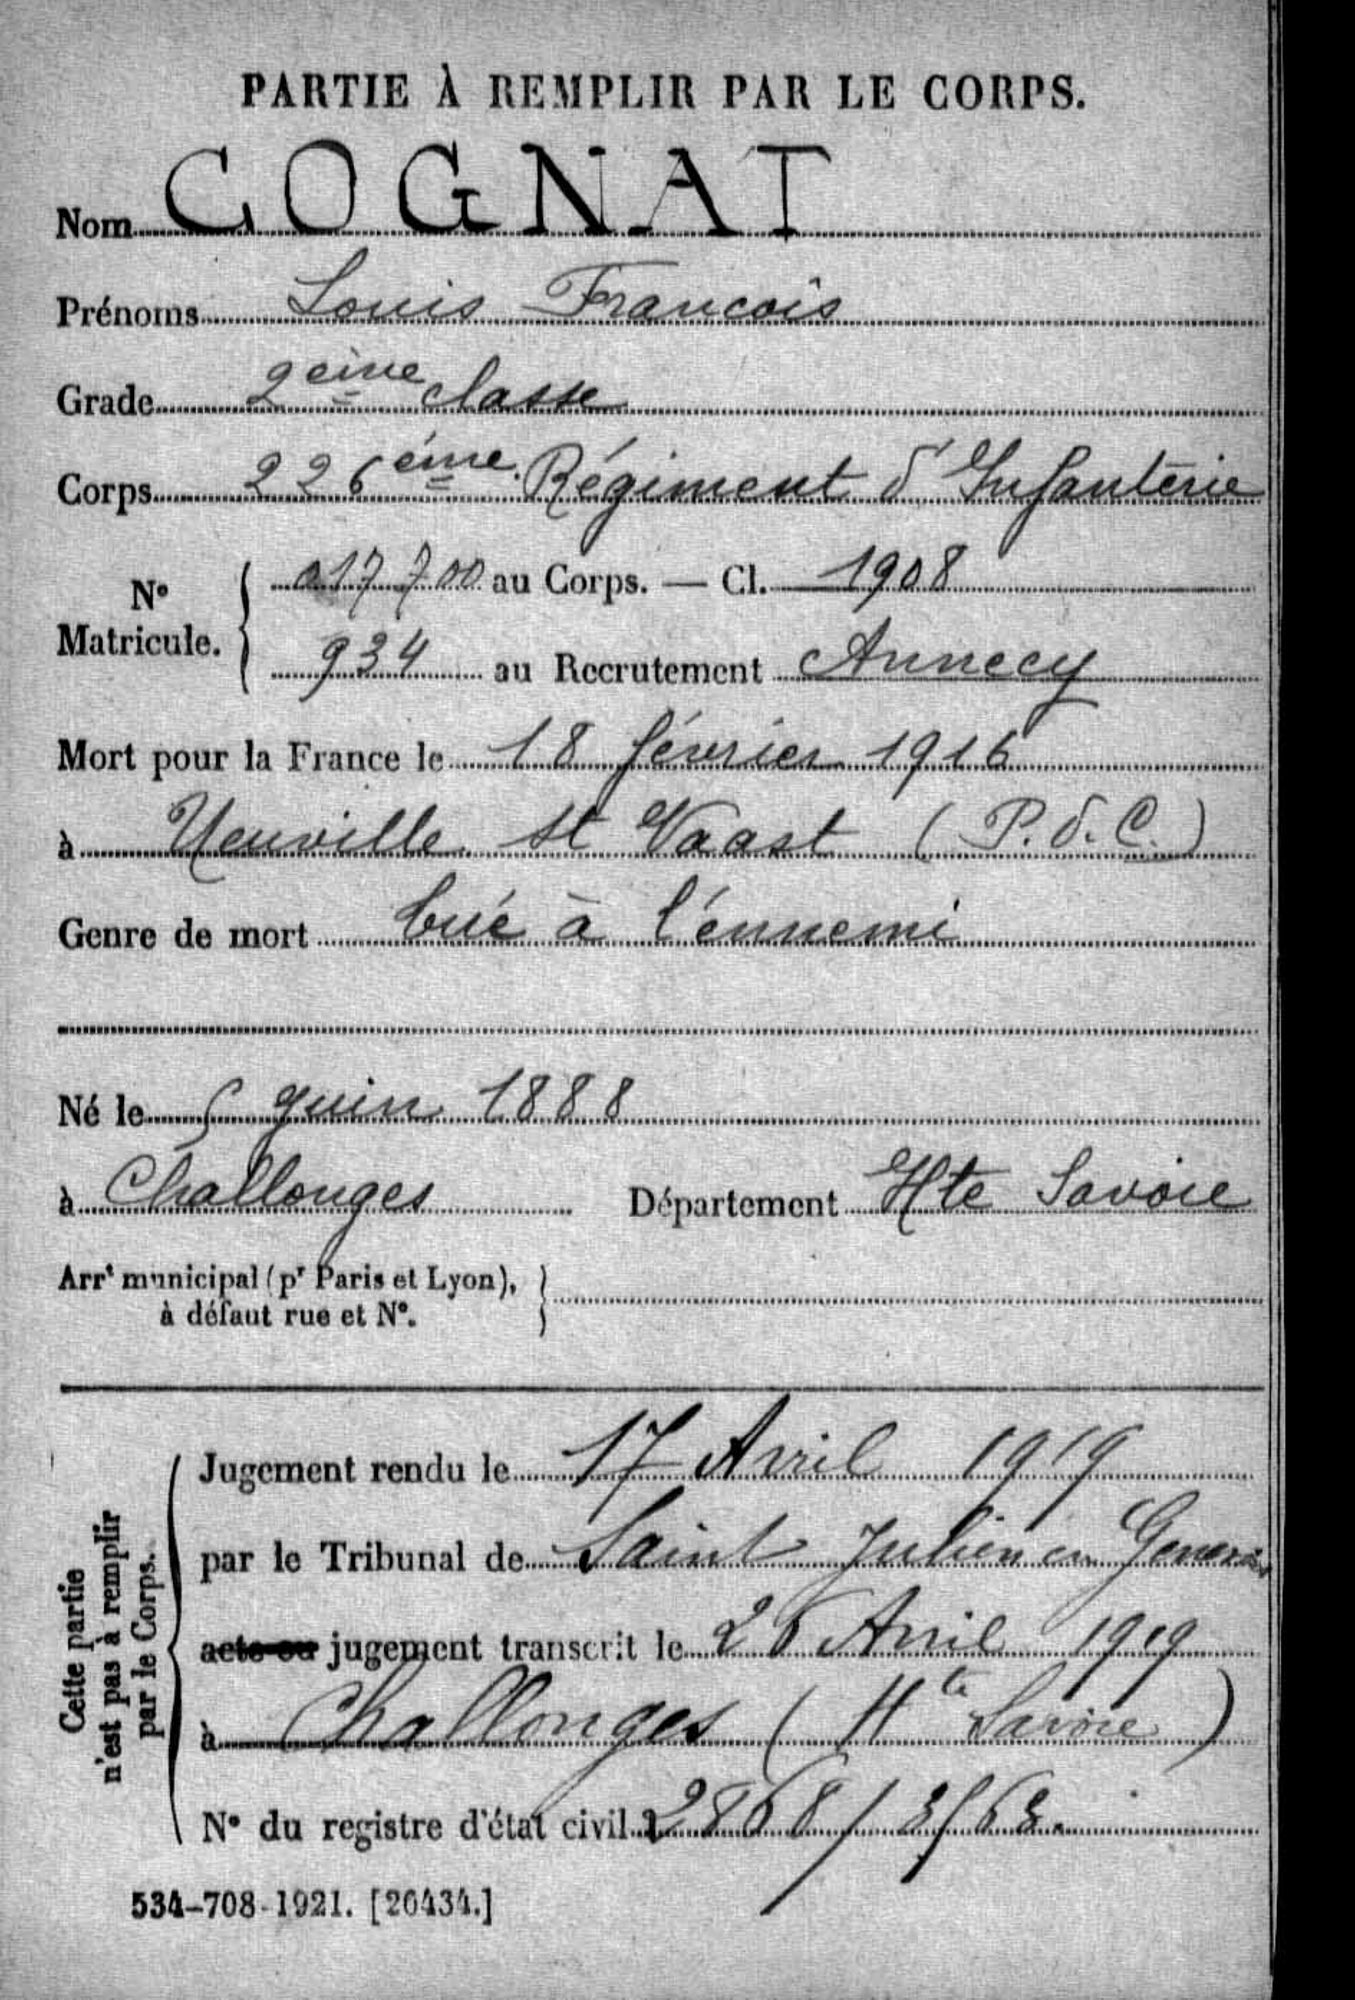 PARTIE À REMPLIR PAR LE CORPS.
Nom COGNAT
Prénoms Louis François
Grade 2ème classe
Corps 226ème Régiment d'Infanterie
N° Matricule. { 017700 au Corps. — Cl. 1908
934 au Recrutement Annecy
Mort pour la France le 18 février 1916
à Neuville St Vaast (P.d.C.)
Genre de mort tué à l'ennemi
Né le 5 Juin 1888
à Challonges Département Hte Savoie
Arrt municipal (pr Paris et Lyon), à défaut rue et N°. }
Cette partie n'est pas à remplir par le Corps.
Jugement rendu le 17 Avril 1919
par le Tribunal de Saint Julien en Genevois
acte ou jugement transcrit le 26 Avril 1919
à Challonges (Hte Savoie)
N° du registre d'état civil 2868/
534-708-1921. [26434.]